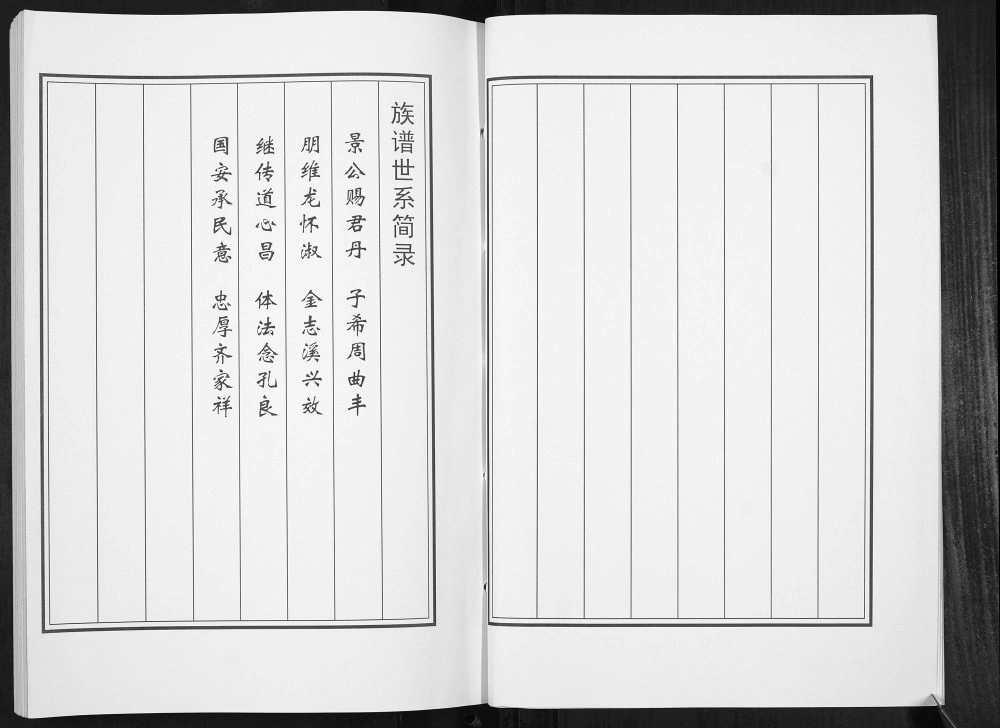 族谱世系简录
景公赐君丹 子希周曲丰
朋维龙怀淑 金志溪兴效
继传道心昌 体法念孔良
国安承民意 忠厚齐家祥